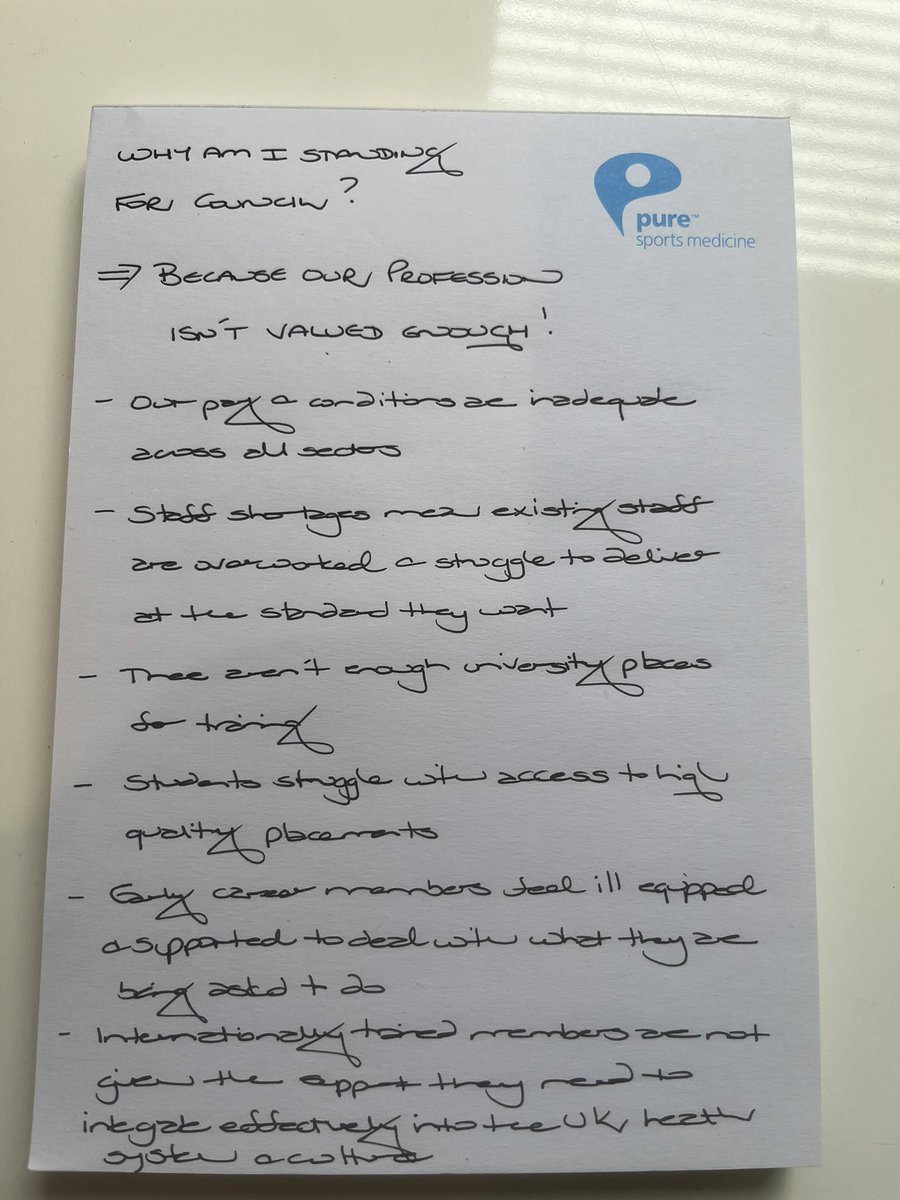 WHY AM I STANDING
FOR COUNCIL?
pure™
sports medicine
⇒ BECAUSE OUR PROFESSION
ISN'T VALUED ENOUGH!
- Our pay & conditions are inadequate
across all sectors
- Staff shortages mean existing staff
are overworked & struggle to deliver
at the standard they want
- There aren't enough university places
for training
- Students struggle with access to high
quality placements
- Early career members feel ill equipped
& supported to deal with what they are
being asked to do
- Internationally trained members are not
given the support they need to
integrate effectively into the UK health
system & culture